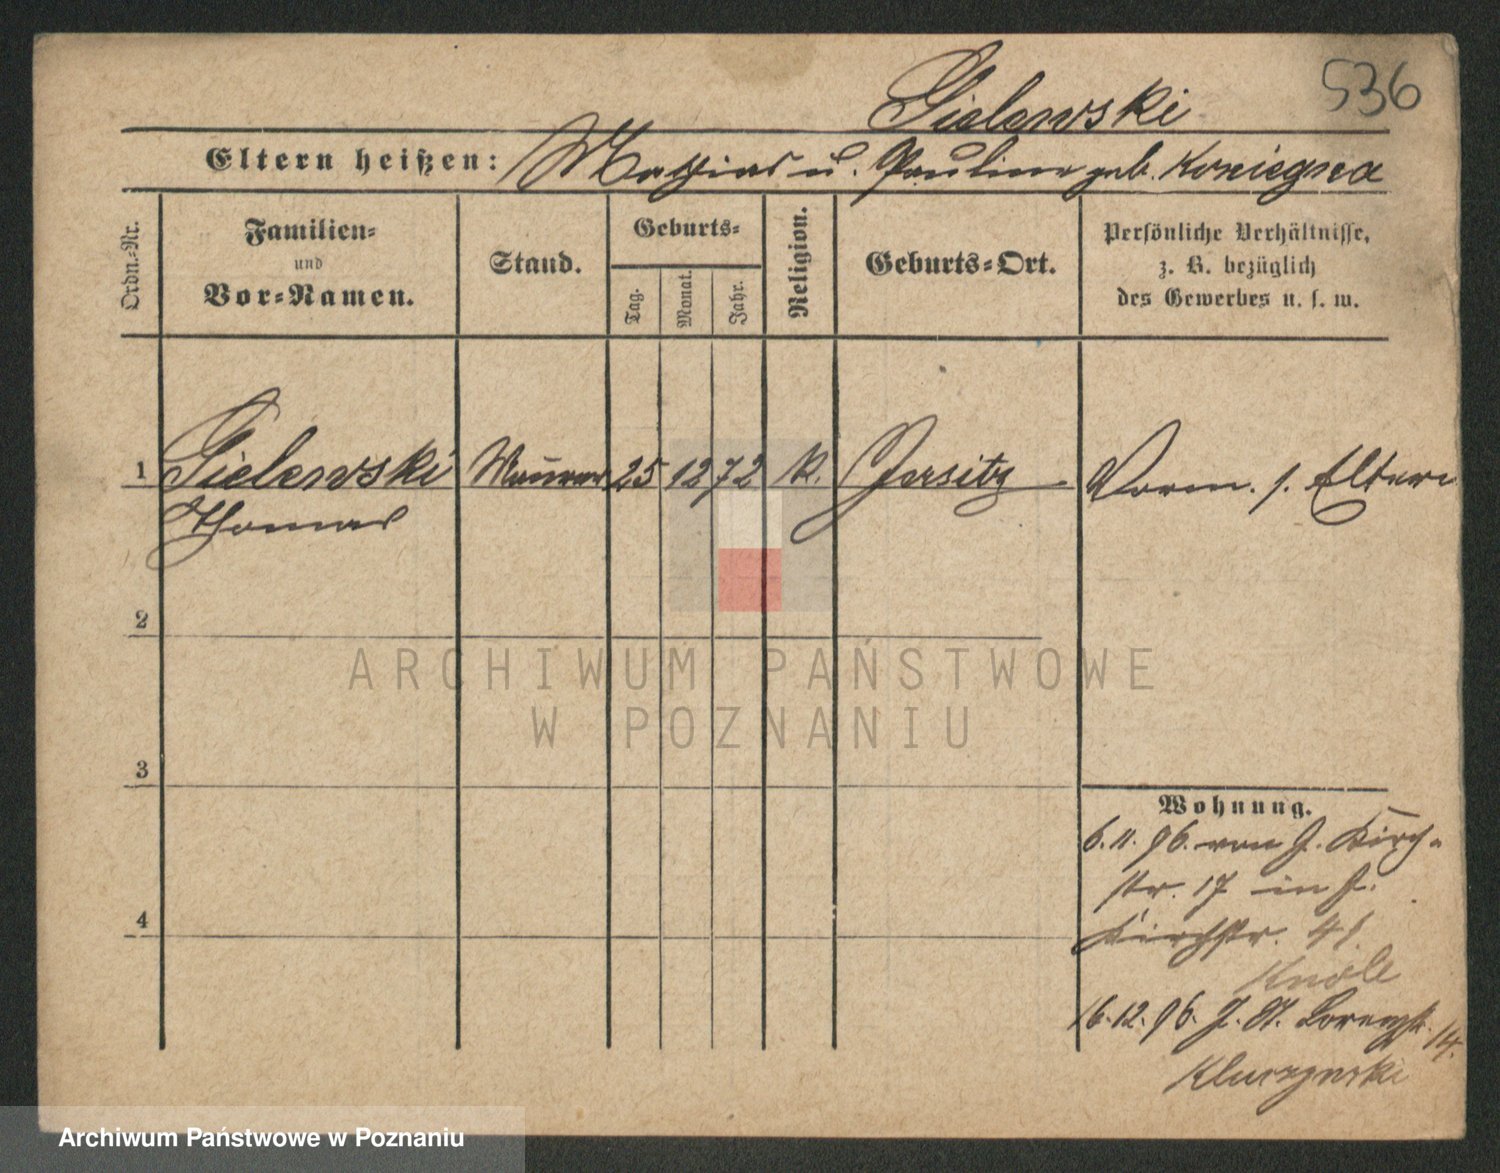 536
Gielewski
Eltern heißen: Mathias u. Pauline geb. Koniezna
Ordn.-Nr.
Familien-
und
Vor-Namen.
Stand.
Geburts-
Tag.
Monat.
Jahr.
Religion.
Geburts-Ort.
Persönliche Verhältnisse,
z. B. bezüglich
des Gewerbes u. s. w.
1 Gielewski Maurer 25 12 72 K. Jersitz Vorm. s. Eltern
Thomas
2
3
4
Wohnung.
6.11.96. von J. Kirch-
str. 17 in J.
Kirchstr. 41.
16.12.96. J. St. Lorenzstr. 14.
ARCHIWUM PAŃSTWOWE
W POZNANIU
Archiwum Państwowe w Poznaniu